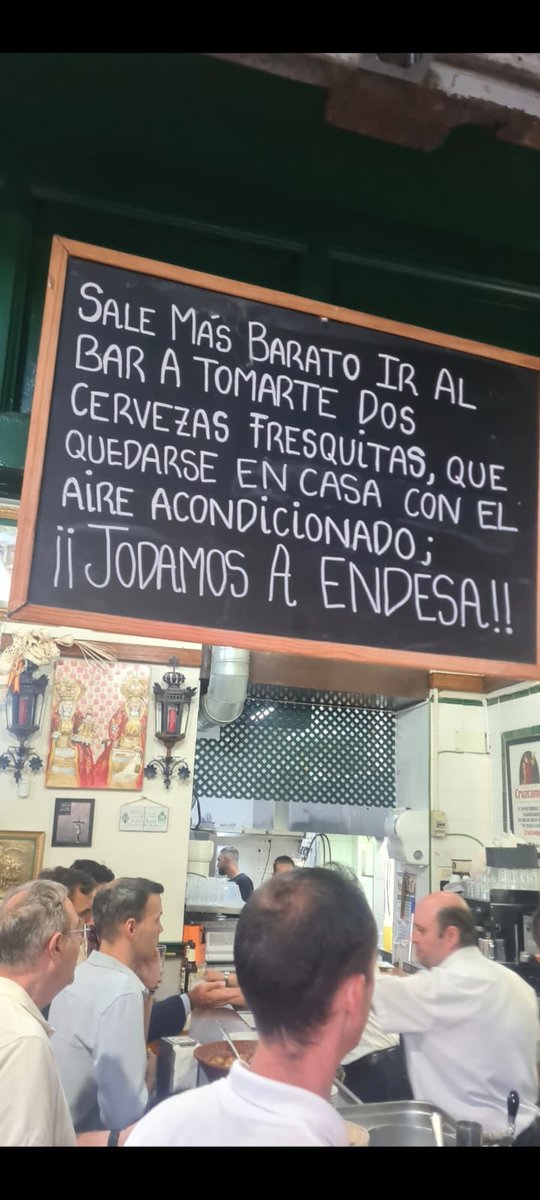 SALE MÁS BARATO IR AL
BAR A TOMARTE DOS
CERVEZAS FRESQUITAS, QUE
QUEDARSE EN CASA CON EL
AIRE ACONDICIONADO;
¡¡JODAMOS A ENDESA!!